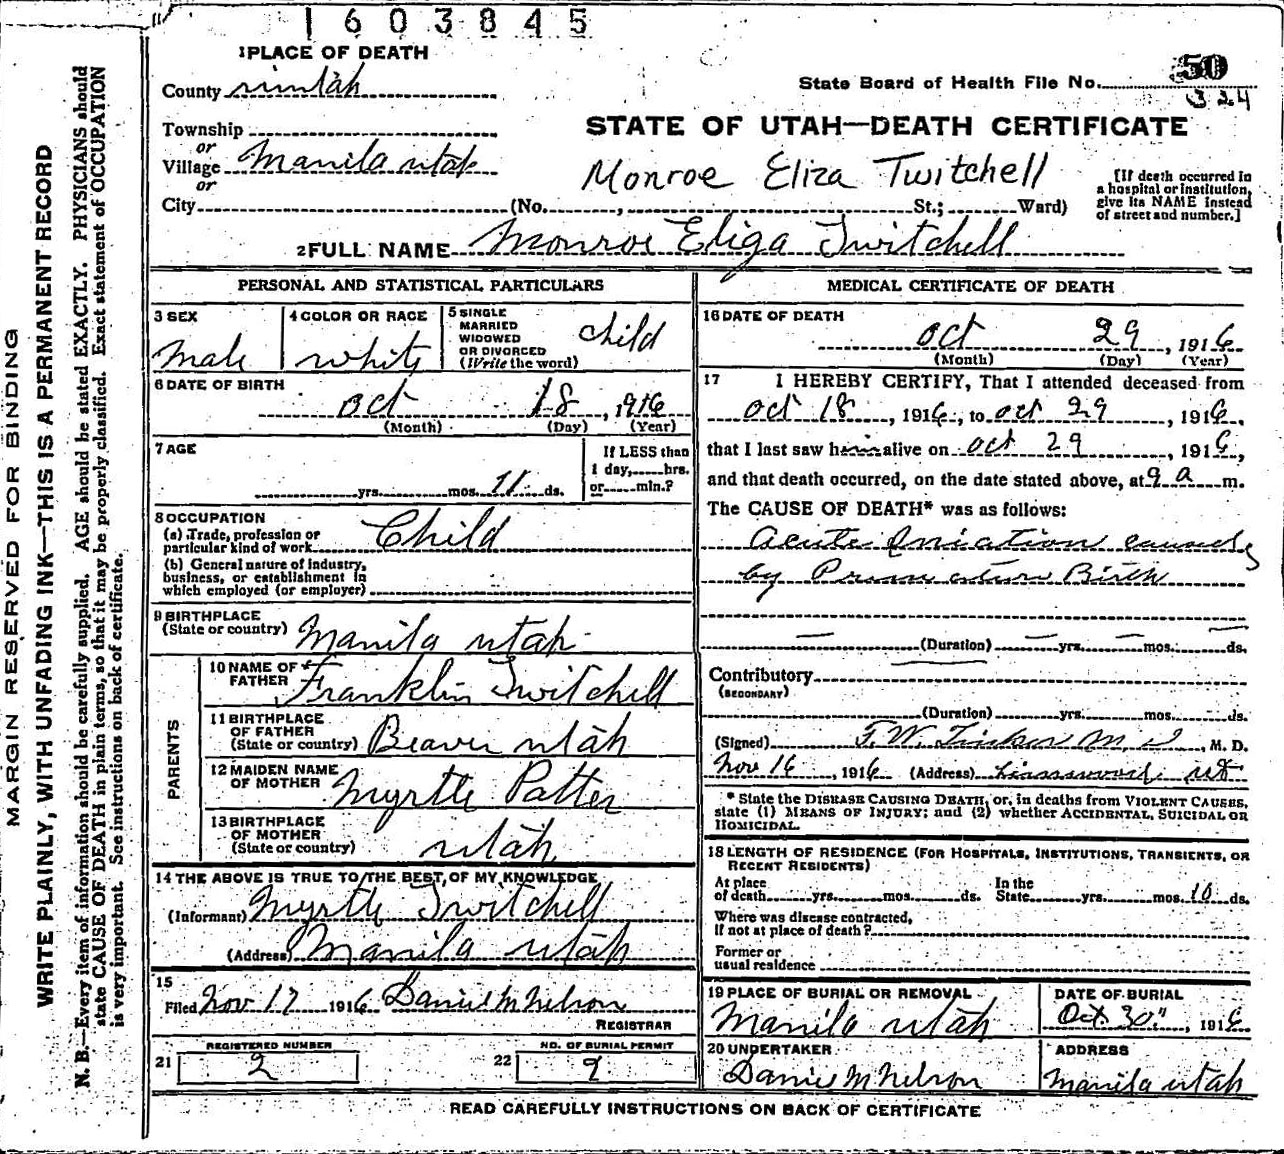 1603845
1 PLACE OF DEATH
County
State Board of Health File No. 50
324
Township
or
Village Manila utah
or
City (No. , St.; Ward)
STATE OF UTAH—DEATH CERTIFICATE
Monroe Eliza Twitchell
[If death occurred in a hospital or institution, give its NAME instead of street and number.]
2 FULL NAME Monroe Eliza Twitchell
PERSONAL AND STATISTICAL PARTICULARS
3 SEX
Male
4 COLOR OR RACE
white
5 SINGLE
MARRIED
WIDOWED
OR DIVORCED
(Write the word)
child
6 DATE OF BIRTH
Oct 18, 1916
(Month) (Day) (Year)
7 AGE
yrs. mos. 11 ds.
If LESS than
1 day, hrs.
or min.?
8 OCCUPATION
(a) Trade, profession or
particular kind of work Child
(b) General nature of industry,
business, or establishment in
which employed (or employer)
9 BIRTHPLACE
(State or country) Manila utah
PARENTS
10 NAME OF
FATHER Franklin Twitchell
11 BIRTHPLACE
OF FATHER
(State or country) Beaver utah
12 MAIDEN NAME
OF MOTHER Myrtle Patter
13 BIRTHPLACE
OF MOTHER
(State or country) utah
14 THE ABOVE IS TRUE TO THE BEST OF MY KNOWLEDGE
(Informant) Myrtle Twitchell
(Address) Manila utah
15
Filed Nov 17 1916 Daniel M Nelson
REGISTRAR
21 REGISTERED NUMBER
2
22 NO. OF BURIAL PERMIT
9
MEDICAL CERTIFICATE OF DEATH
16 DATE OF DEATH
Oct 29, 1916
(Month) (Day) (Year)
17 I HEREBY CERTIFY, That I attended deceased from
Oct 18, 1916, to Oct 29, 1916,
that I last saw him alive on Oct 29, 1916,
and that death occurred, on the date stated above, at 9 a m.
The CAUSE OF DEATH* was as follows:
Acute caused
by Birth
(Duration) yrs. mos. ds.
Contributory
(SECONDARY)
(Duration) yrs. mos. ds.
(Signed) F. W. Tinker M D, M. D.
Nov 16, 1916 (Address) Linnwood ut
* State the DISEASE CAUSING DEATH, or, in deaths from VIOLENT CAUSES,
state (1) MEANS OF INJURY; and (2) whether ACCIDENTAL, SUICIDAL OR
HOMICIDAL.
18 LENGTH OF RESIDENCE (FOR HOSPITALS, INSTITUTIONS, TRANSIENTS, OR
RECENT RESIDENTS)
At place
of death yrs. mos. ds.
In the
State yrs. mos. 10 ds.
Where was disease contracted,
if not at place of death?
Former or
usual residence
19 PLACE OF BURIAL OR REMOVAL
Manila utah
DATE OF BURIAL
Oct. 30", 1916
20 UNDERTAKER
Daniel M Nelson
ADDRESS
Manila utah
READ CAREFULLY INSTRUCTIONS ON BACK OF CERTIFICATE
MARGIN RESERVED FOR BINDING
WRITE PLAINLY, WITH UNFADING INK—THIS IS A PERMANENT RECORD
N. B.—Every item of information should be carefully supplied. AGE should be stated EXACTLY. PHYSICIANS should
state CAUSE OF DEATH in plain terms, so that it may be properly classified. Exact statement of OCCUPATION
is very important. See instructions on back of certificate.